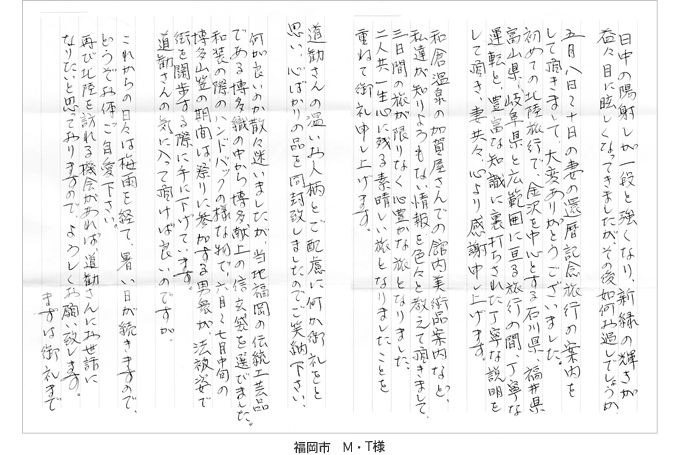 日中の陽射しが一段と強くなり、新緑の輝きが
益々目に眩しくなってきましたが、その後如何お過しでしょうか。
五月八日〜十日の妻の還暦記念旅行の案内を
して頂きまして、大変ありがとうございました。
初めての北陸旅行で、金沢を中心とする石川県、福井県
富山県、岐阜県と広範囲に亘る旅行の間、丁寧な
運転と、豊富な知識に裏打ちされた丁寧な説明を
して頂き、妻共々、心より感謝申し上げます。
和倉温泉の加賀屋さんでの館内美術品案内など、
私達が知りようもない情報を色々と教えて頂きまして、
三日間の旅が限りなく心豊かな旅となりました。
二人共一生心に残る素晴しい旅となりましたことを
重ねて御礼申し上げます。
道勧さんの温いお人柄とご配慮に何か御礼をと
思い、心ばかりの品を同封致しましたのでご笑納下さい。
何が良いのか散々迷いましたが、当地福岡の伝統工芸品
である博多織の中から博多献上の信玄袋を選びました。
和装の際のハンドバックの様な物で、六月〜七月中旬の
博多山笠の期間は祭りに参加する男衆が、法被姿で
街を闊歩する際に手に下げています。
道勧さんの気に入って頂けば良いのですが。
これからの日々は梅雨を経て、暑い日が続きますので、
どうぞお体ご自愛下さい。
再び北陸を訪れる機会があれば、道勧さんにお世話に
なりたいと思っておりますので、よろしくお願い致します。
まずは御礼まで
福岡市　M・T様